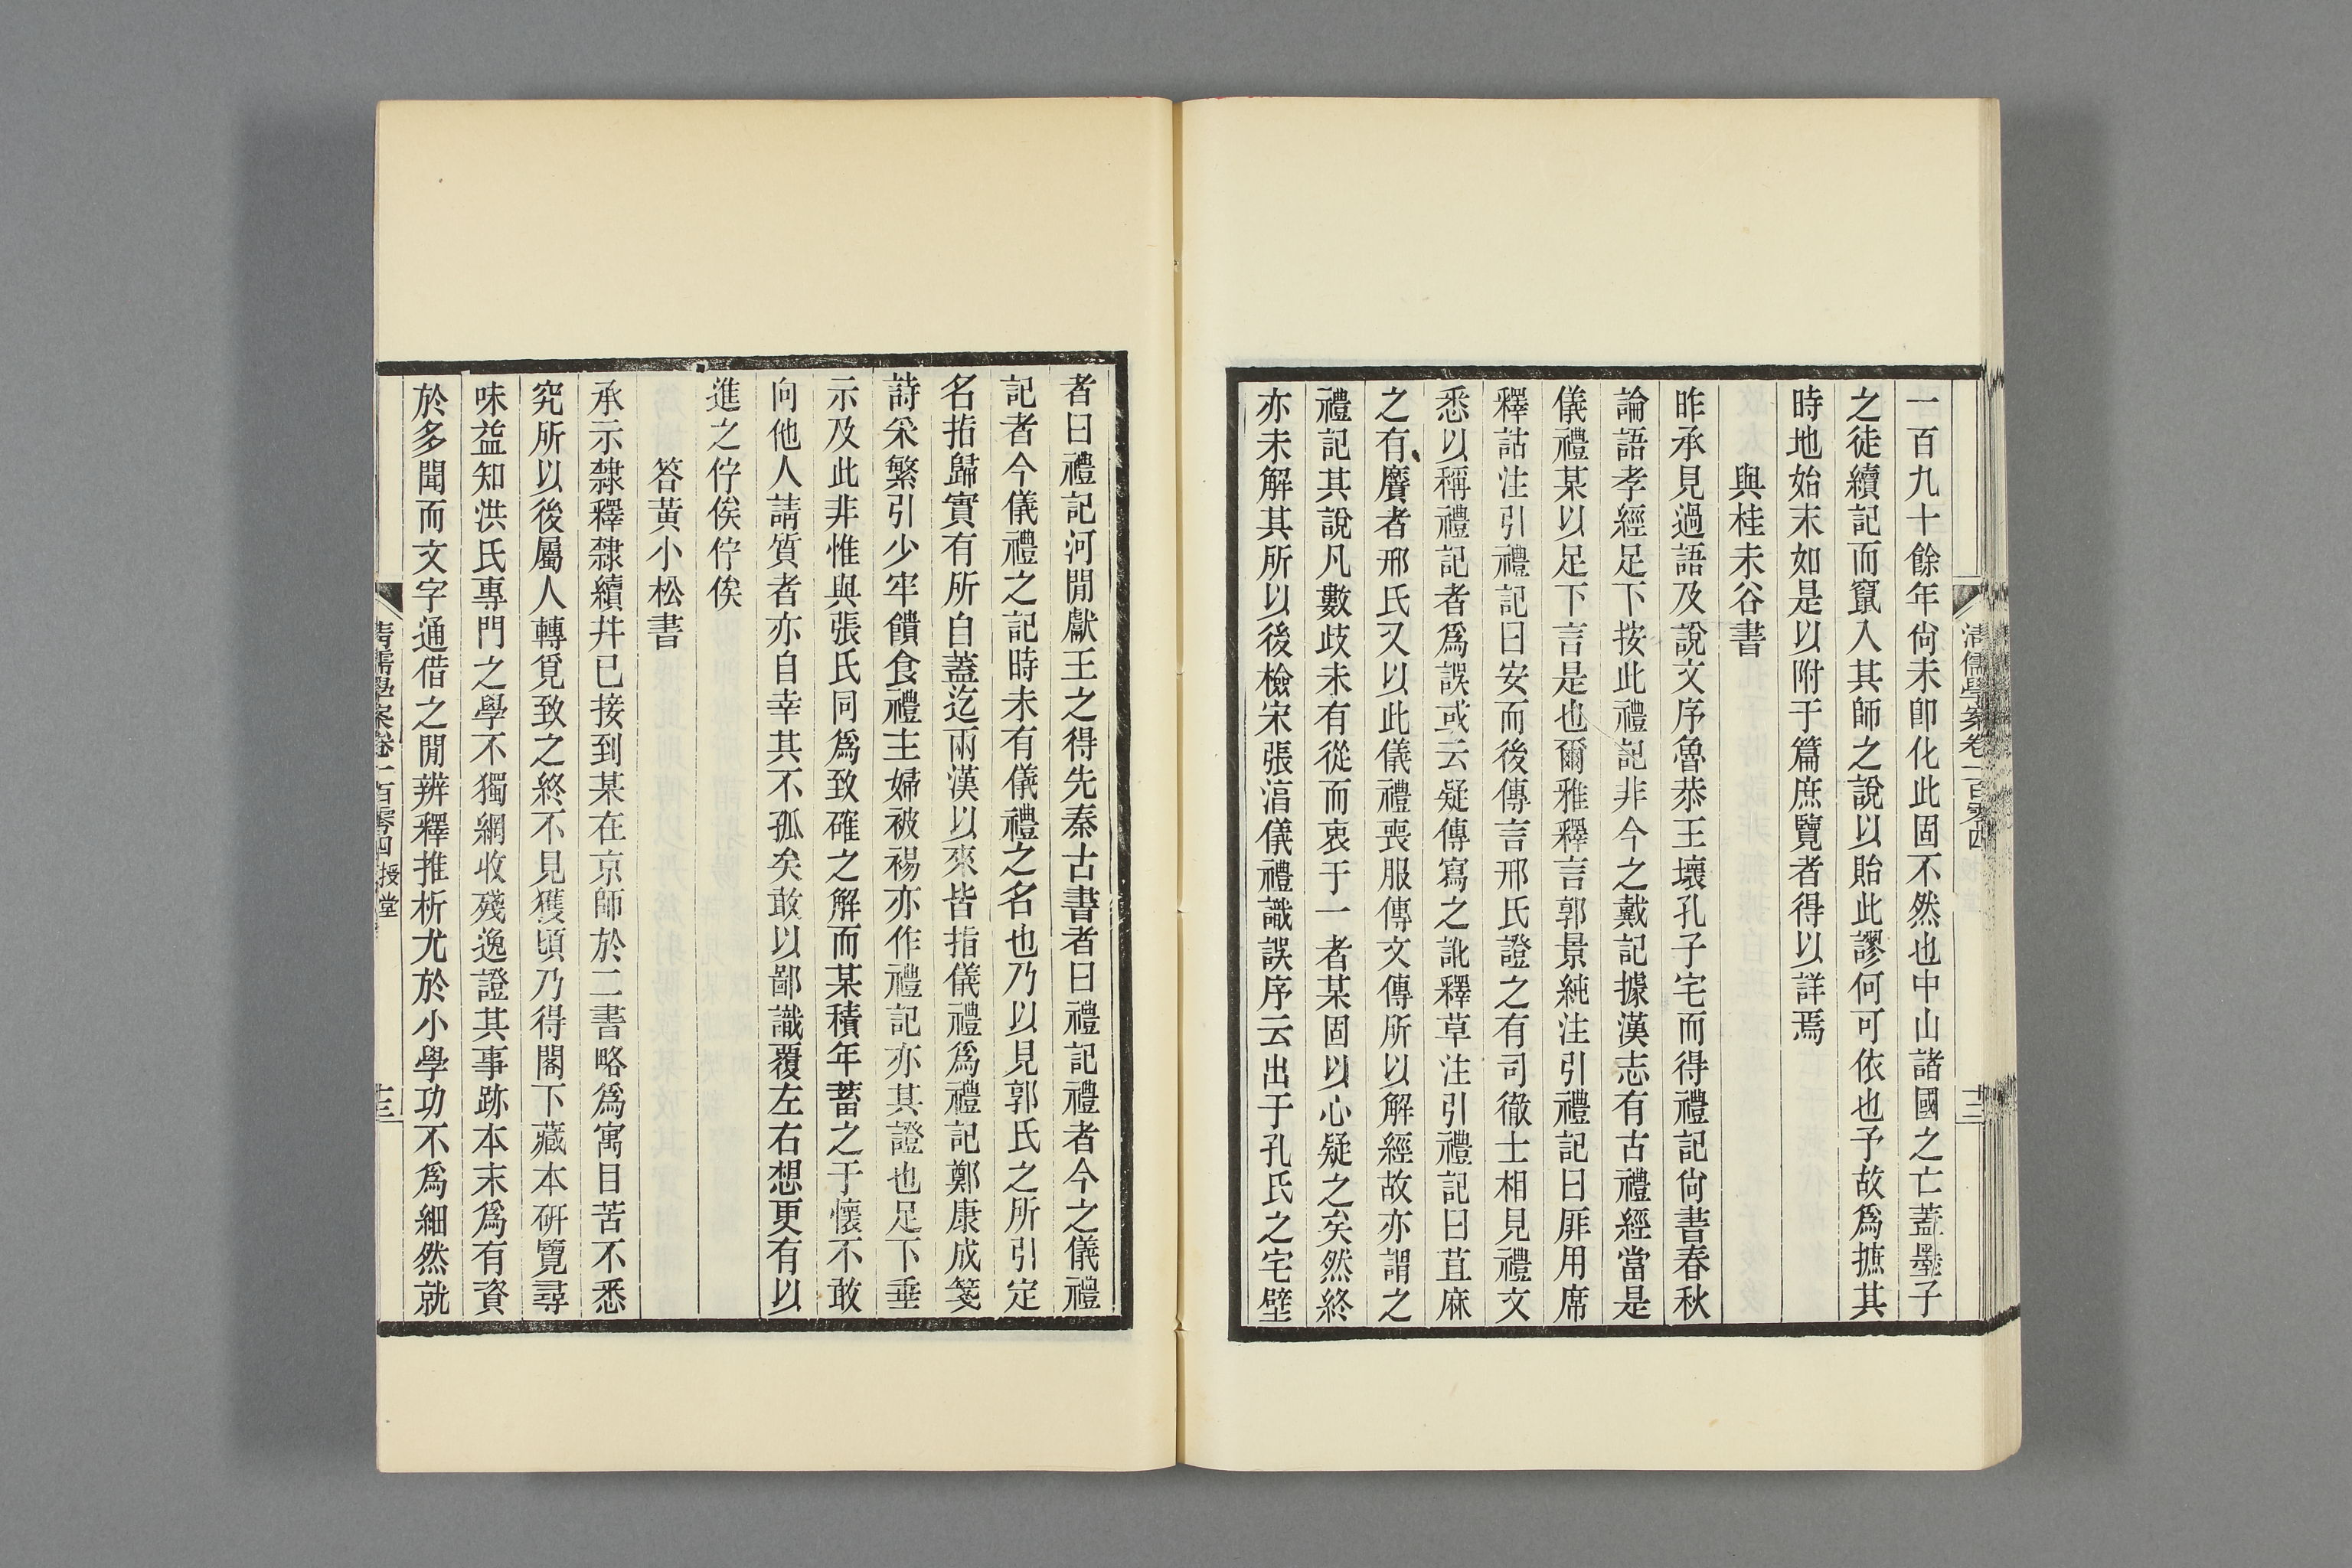 清儒學案卷一百零四
十二
一百九十餘年尙未卽化此固不然也中山諸國之亡蓋墨子
之徒續記而竄入其師之說以貽此謬何可依也予故爲摭其
時地始末如是以附于篇庶覽者得以詳焉
與桂未谷書
昨承見過語及說文序魯恭王壞孔子宅而得禮記尙書春秋
論語孝經足下按此禮記非今之戴記據漢志有古禮經當是
儀禮某以足下言是也爾雅釋言郭景純注引禮記曰厞用席
釋詁注引禮記曰安而後傳言邢氏證之有司徹士相見禮文
悉以稱禮記者爲誤或云疑傳寫之訛釋草注引禮記曰苴麻
之有黂者邢氏又以此儀禮喪服傳文傳所以解經故亦謂之
禮記其說凡數歧未有從而衷于一者某固以心疑之矣然終
亦未解其所以後檢宋張淳儀禮識誤序云出于孔氏之宅壁
者曰禮記河閒獻王之得先秦古書者曰禮記禮者今之儀禮
記者今儀禮之記時未有儀禮之名也乃以見郭氏之所引定
名指歸實有所自蓋迄兩漢以來皆指儀禮爲禮記鄭康成箋
詩采繁引少牢饋食禮主婦被裼亦作禮記亦其證也足下垂
示及此非惟與張氏同爲致確之解而某積年蓄之于懷不敢
向他人請質者亦自幸其不孤矣敢以鄙識覆左右想更有以
進之佇俟佇俟
答黃小松書
承示隸釋隸續幷已接到某在京師於二書略爲寓目苦不悉
究所以後屬人轉覓致之終不見獲頃乃得閣下藏本硏覽尋
味益知洪氏專門之學不獨網收殘逸證其事跡本末爲有資
於多聞而文字通借之閒辨釋推析尤於小學功不爲細然就
清儒學案卷一百零四 授堂
十三